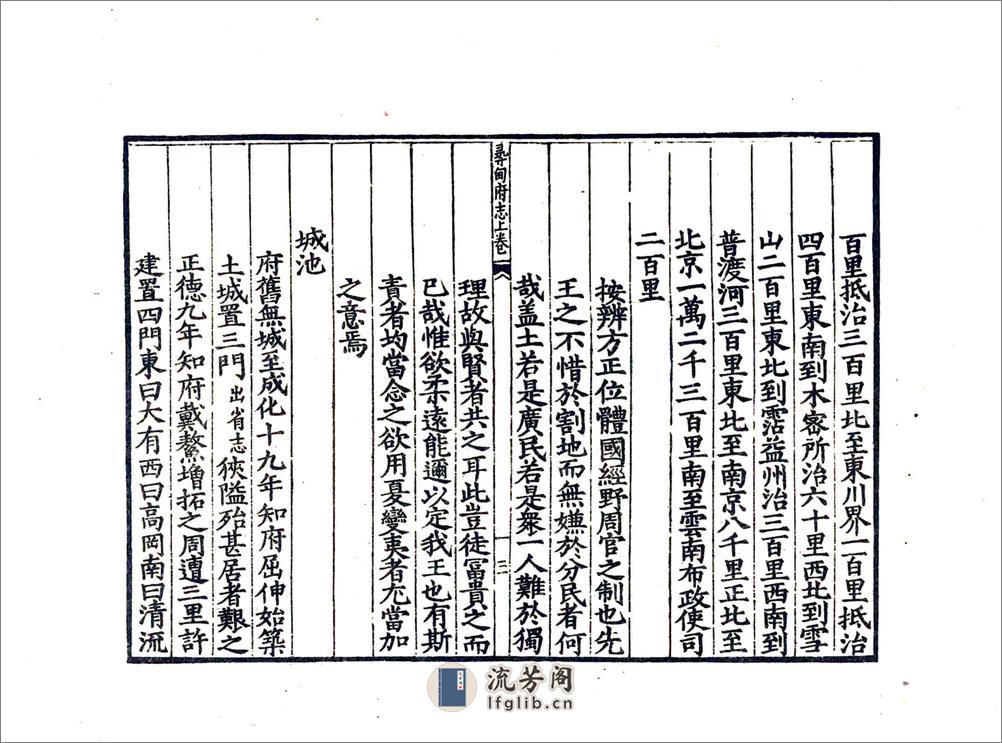 百里抵治三百里北至東川界一百里抵治
四百里東南到木密所治六十里西北到雪
山二百里東北到霑益州治三百里西南到
普渡河三百里東北至南京八千里正北至
北京一萬二千三百里南至雲南布政使司
二百里
按辨方正位體國經野周官之制也先
王之不惜於割地而無嫌於分民者何
哉盖土若是廣民若是衆一人難於獨
尋甸府志上卷
三
理故與賢者共之耳此豈徒冨貴之而
已哉惟欲柔遠能邇以定我王也有斯
責者均當念之欲用夏變夷者尤當加
之意焉
城池
府舊無城至成化十九年知府屈伸始築
土城置三門出省志狹隘殆甚居者艱之
正德九年知府戴鰲增拓之周遭三里許
建置四門東曰大有西曰高岡南曰清流
流芳阁
lfglib.cn